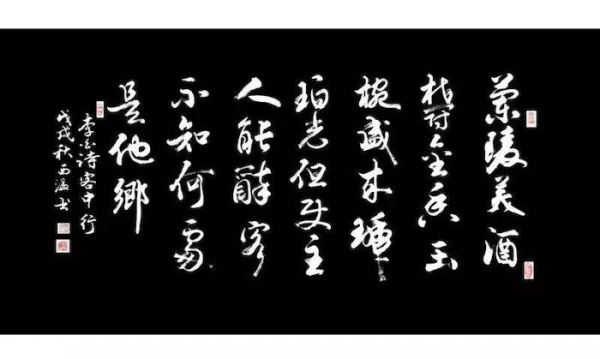 蘭陵美酒
鬱金香玉
椀盛來琥
珀光但使主
人能醉客
不知何處
是他鄉
李白詩客中行
戊戌秋西書